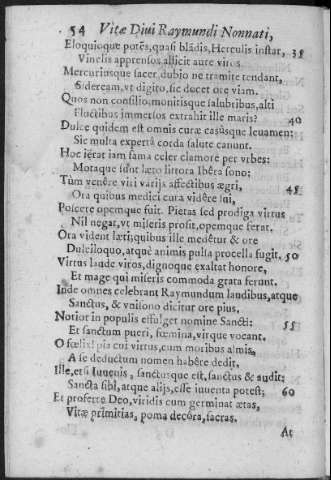 54 Vitæ Diui Raymundi Nonnati,
Eloquioque potẽs, quasi blãdis, Herculis instar, 35
Vinclis apprensos allicit aure viros.
Mercuriusque sacer, dubio ne tramite tendant,
Sideream, vt digito, sic docet ore viam.
Quos non consilio, monitisque salubribus, alti
Fluctibus immersos extrahit ille maris? 40
Dulce quidem est omnis curæ casùsque leuamen:
Sic multa experta corda salute canunt.
Hoc iẽrat iam fama celer clamore per vrbes:
Motaque sunt læto littora Ibera sono;
Tùm venêre viri varijs affectibus ægri, 45
Ora quibus medici cura vidêre lui,
Poscere opemque fuit. Pietas sed prodiga virtus
Nil negat, vt miseris prosit, opemque ferat.
Ora vident læti; quibus ille medetur & ore
Dulciloquo, atquè animis pulsa procella fugit. 50
Virtus laude viros, dignoque exaltat honore,
Et mage qui miseris commoda grata ferunt.
Inde omnes celebrant Raymundum laudibus, atque
Sanctus, & vnisono dicitur ore pius.
Notior in populis effulget nomine Sancti: 55
Et sanctum pueri, fœmina, virque vocant.
O fœlix! pia cui virtus, cum moribus almis,
A se deductum nomen habêre dedit.
Ille, etsi Iuuenis, sanctusque est, sanctus & audit:
Sancta sibi, atque alijs, esse iuuenta potest; 60
Et proferre Deo, viridis cum germinat ætas,
Vitæ primitias, poma decóra, sacras.
At